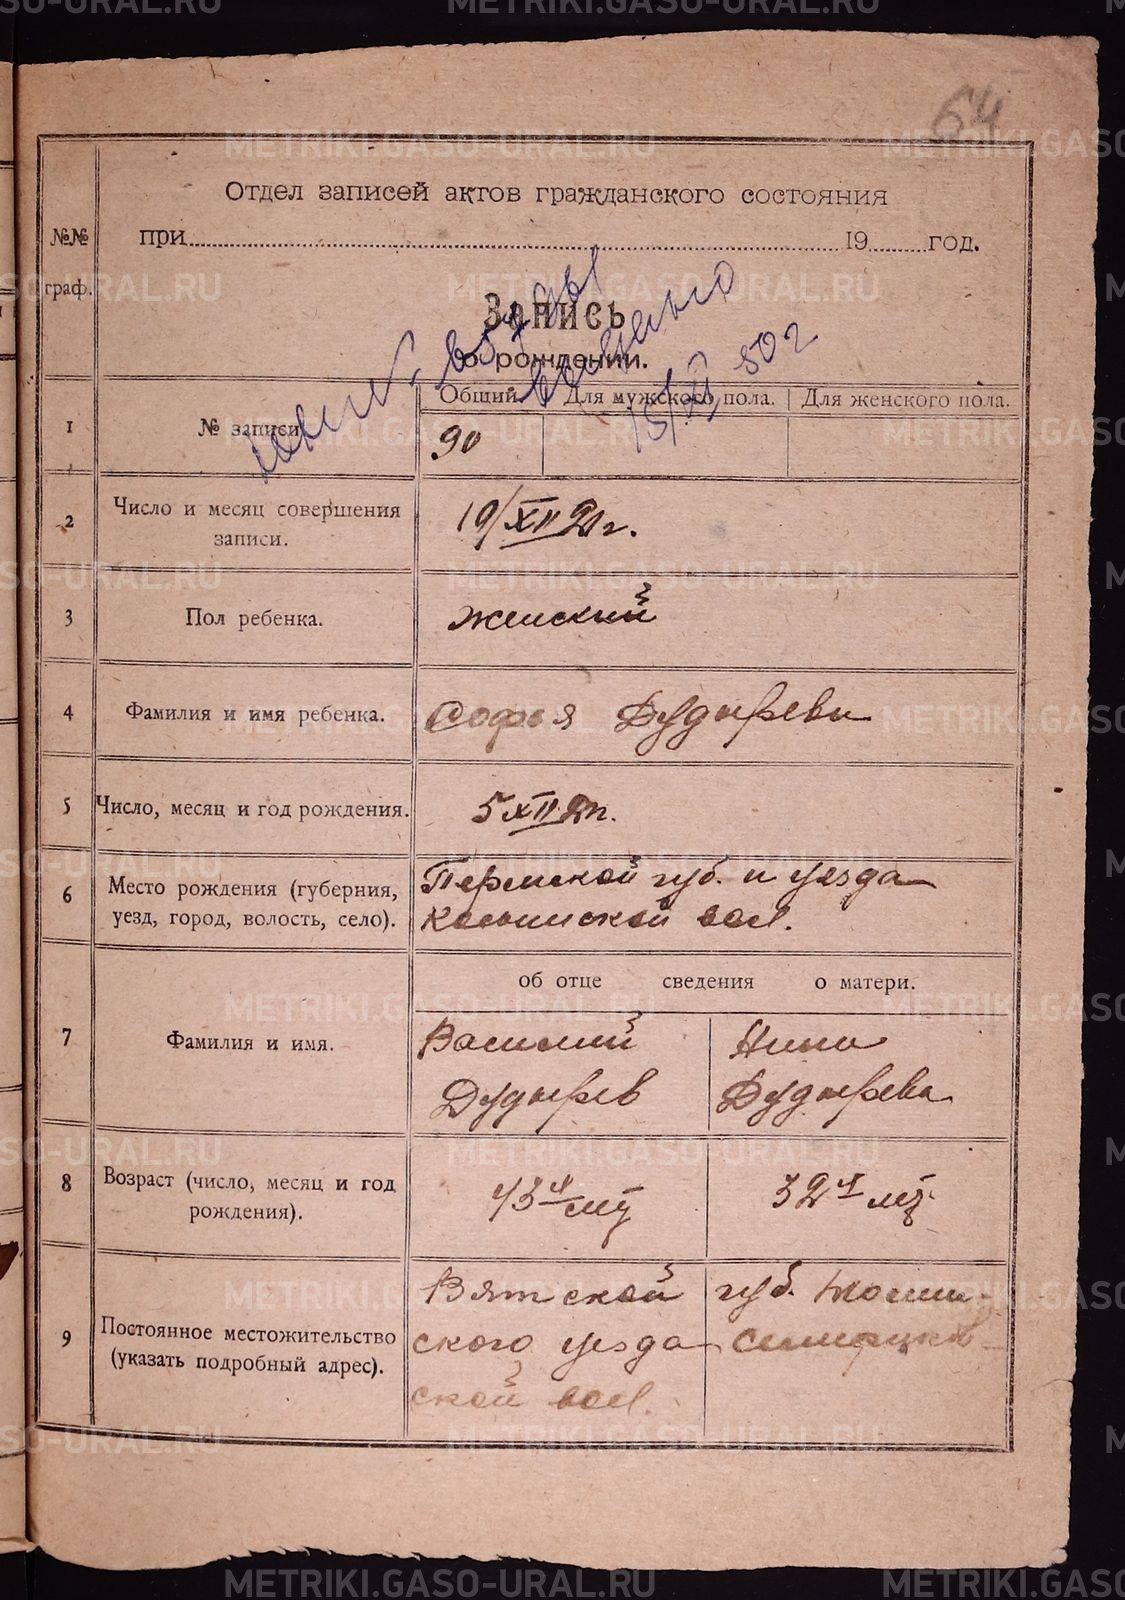 64
Отдел записей актов гражданского состояния
при 19 год.
№№
граф.
Запись
о рождении.
15/XII 50 г
Общий Для мужского пола. Для женского пола.
1 № записи 90
2 Число и месяц совершения
записи.
19/XII 21 г.
3 Пол ребенка. женский
4 Фамилия и имя ребенка. Софья Дудырева
5 Число, месяц и год рождения. 5 XII 21 г.
6 Место рождения (губерния,
уезд, город, волость, село).
Пермской губ. и уезда
вол.
об отце сведения о матери.
7 Фамилия и имя.
Василий Нина
Дудырев Дудырева
8 Возраст (число, месяц и год
рождения).
43 32
9 Постоянное местожительство
(указать подробный адрес).
Вятской губ.
ского уезда
ской вол.
METRIKI.GASO-URAL.RU